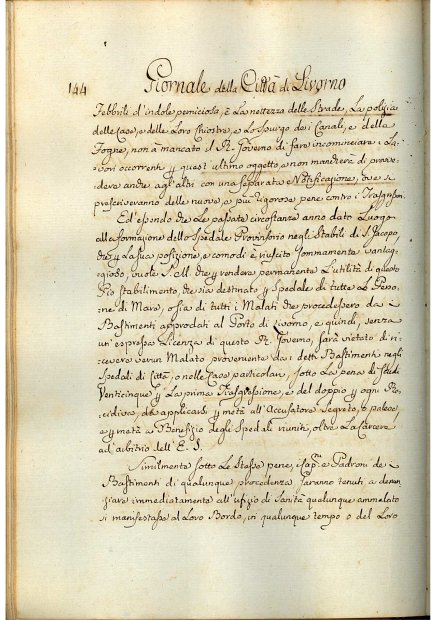 144 Giornale della Città di Livorno
Febbrili d'indole perniciosa, è La nettezza delle Strade, La pulizia
delle Case, e delle Loro Chiostre, e Lo spurgo dei Canali, e delle
Fogne, non à mancato il R. Governo di fare incominciare i La-
vori occorrenti p quest' ultimo oggetto, e non mancherà di prove-
dere anche agl' altri con una separata Notificazione, ove si
prescriveranno delle nuove, e più rigorose pene contro i Trasgressori.
Ed essendo che Le passate circostanze anno dato Luogo
alla formazione dello Spedale Provisorio negli Stabili di S. Jacopo,
che p La sua posizione, e comodi è riuscito sommamente vantag-
gioso, vuole S. M. che p rendere permanente L'utilità di questo
Pio stabilimento, che sia destinato p Spedale di tutte Le Perso-
ne di Mare, ossia di tutti i Malati che procedessero da
Bastimenti approdati al Porto di Livorno, e quindi, senza
un' espressa Licenza di questo R. Governo, sarà vietato di ri-
cevere verun Malato proveniente da i detti Bastimenti negli
Spedali di Città, o nelle Case particolari, sotto La pena di Scudi
Venticinque p La prima Trasgressione, e del doppio p ogni Re-
cidiva, da applicarsi p metà all' Accusatore segreto, o palese,
e p metà a Benefizio degli Spedali riuniti, oltre La Carcere
ad' arbitrio dell' E. S.
Similmente sotto Le stesse pene, i Cap.ni e Padroni de
Bastimenti di qualunque procedenza saranno tenuti a denun-
ziare immediatamente all' ufizio di Sanità qualunque ammalato
si manifestasse al Loro Bordo, in qualunque tempo o del Loro